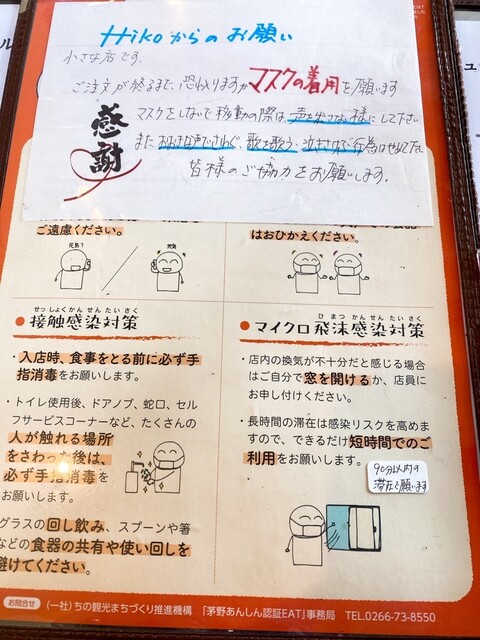 Hikoからのお願い
小さな店です。
ご注文が終るまで、恐れ入りますがマスクの着用を願います
マスクをしないで移動の際は、声を出さない様にして下さい
また おおきな声でさわぐ、歌を歌う、
皆様のご協力をお願いします。
感謝
ご遠慮ください。
はおひかえください。
元気？
元気
せっしょくかんせんたいさく
●接触感染対策
・入店時、食事をとる前に必ず手
指消毒をお願いします。
・トイレ使用後、ドアノブ、蛇口、セル
フサービスコーナーなど、たくさんの
人が触れる場所
をさわった後は、
必ず手指消毒を
お願いします。
グラスの回し飲み、スプーンや箸
などの食器の共有や使い回しを
避けてください。
ひまつかんせんたいさく
●マイクロ飛沫感染対策
・店内の換気が不十分だと感じる場合
はご自分で窓を開けるか、店員に
お申し付けください。
・長時間の滞在は感染リスクを高めま
すので、できるだけ短時間でのご
利用をお願いします。
90分以内の
滞在で願います
お問合せ （一社）ちの観光まちづくり推進機構 「茅野あんしん認証EAT」事務局 TEL.0266-73-8550